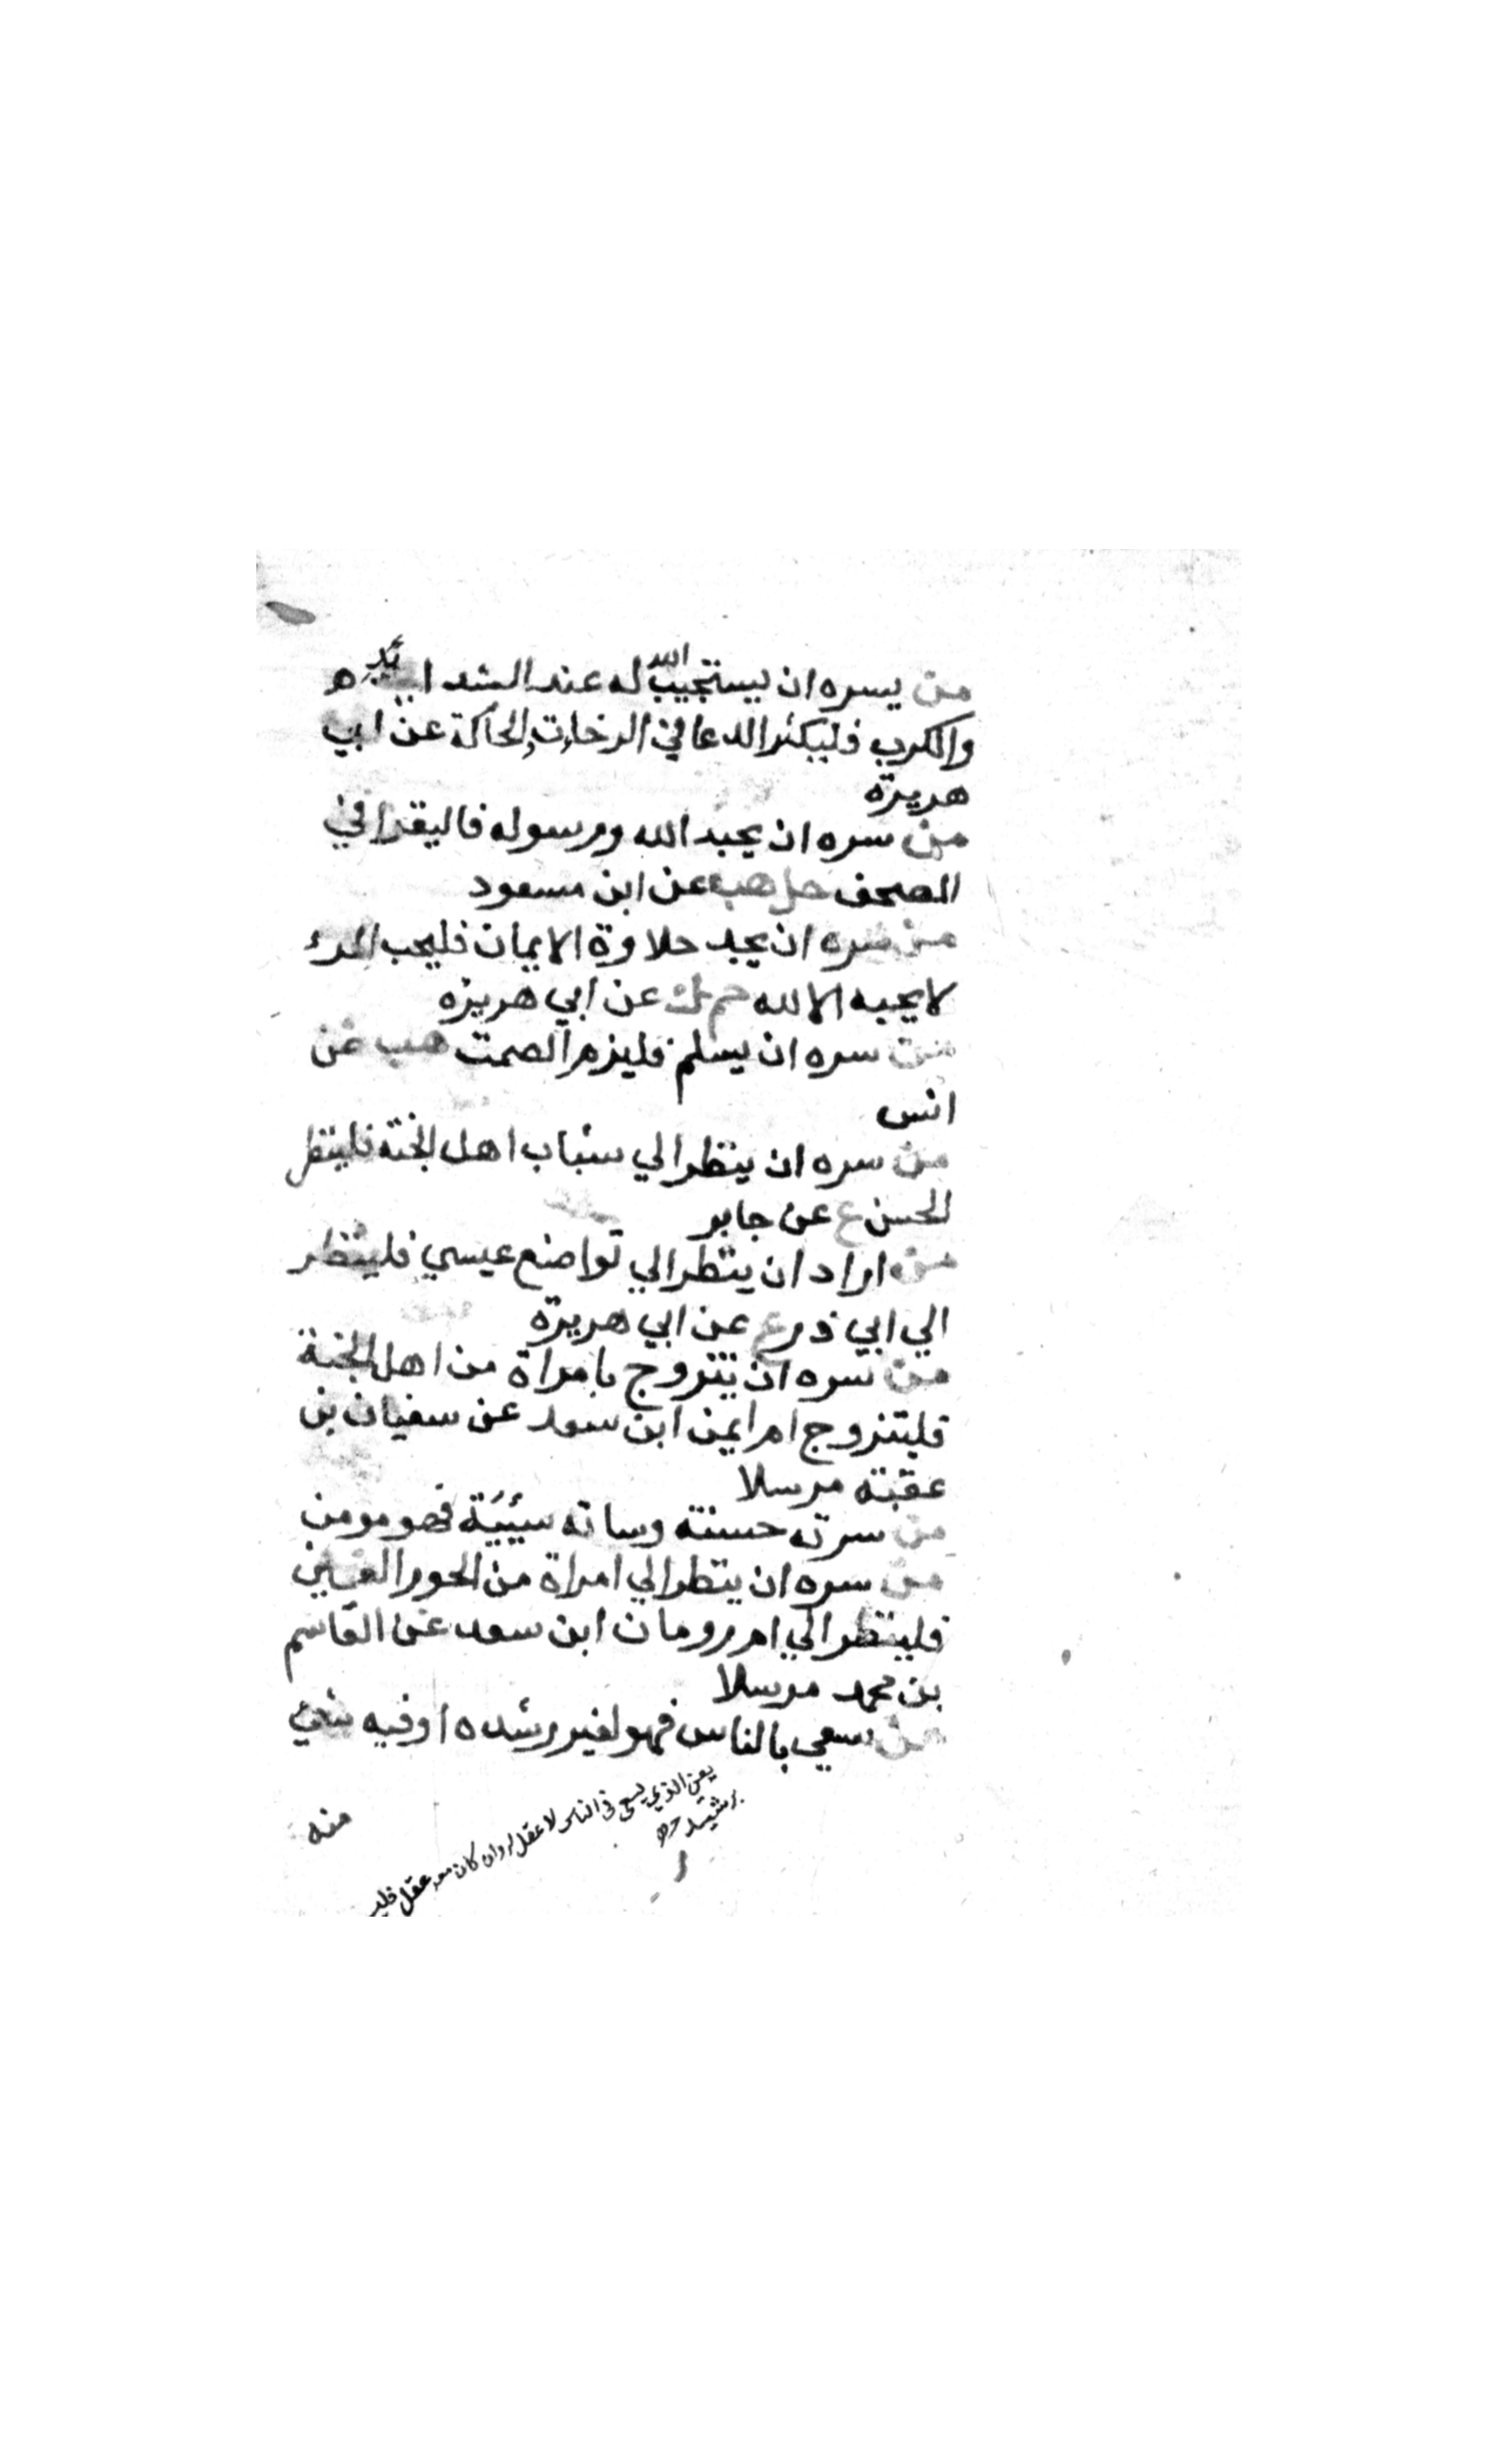 من يسره ان يستجيب الله له عند الشدايد
والكرب فليكثر الدعا في الرخا ت والحاكة عن ابي
هريرة
من سره ان يحبد الله ورسوله فاليقرا في
المصحف حل هب عن ابن مسعود
من سره ان يجد حلاوة الايمان فليحب المرء
لا يحبه الا لله حم ك عن ابي هريرة
من سره ان يسلم فليزم الصمت هب عن
انس
من سره ان ينظر الي سباب اهل الجنة فلينظر
الحسن ع عن جابر
من اراد ان ينظر الي تواضع عيسي فلينظر
الي ابي ذر ع عن ابي هريرة
من سره ان يتزوج بامراة من اهل الجنة
فليتزوج ام ايمن ابن سعد عن سفيان بن
عقبته مرسلا
من سرته حسنته وساته سيئية فهو مومن
من سره ان ينظر الي امراة من الحور العين
فلينظر الي ام رومان ابن سعد عن القاسم
بن محمد مرسلا
من سعي بالناس فهو لغير رشده او فيه شئ
منه
يعني الذي يسعى في الناس لا عقل له وان كان معه عقل فليس
برشيد